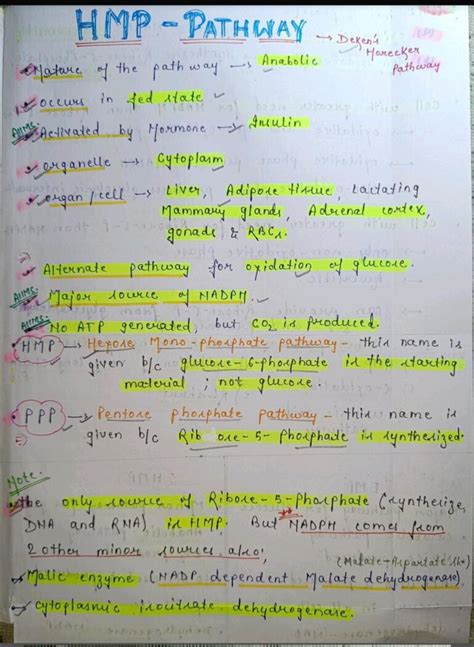 HMP - PATHWAY
→ Deken's
Horecker
Pathway
Nature of the pathway → Anabolic
occurs in fed state
AIIMS: Activated by Hormone → Insulin
organelle → Cytoplasm
organ/cell → Liver, Adipose tissue, Lactating
Mammary glands, Adrenal cortex,
gonads, & RBCs.
Alternate pathway for oxidation of glucose.
AIIMS: Major source of NADPH.
AIIMS: No ATP generated, but CO2 is produced.
HMP → Hexose Mono-phosphate pathway - this name is
given b/c glucose-6-phosphate is the starting
material ; not glucose.
PPP → Pentose phosphate pathway - this name is
given b/c Ribose-5-phosphate is synthesized.
Note:
the only source of Ribose-5-Phosphate (synthesize
DNA and RNA) is HMP. But NADPH comes from
2 other minor sources also;
(Malate-Aspartate Sh.)
Malic enzyme (NADP dependent Malate dehydrogenase)
cytoplasmic isocitrate dehydrogenase.